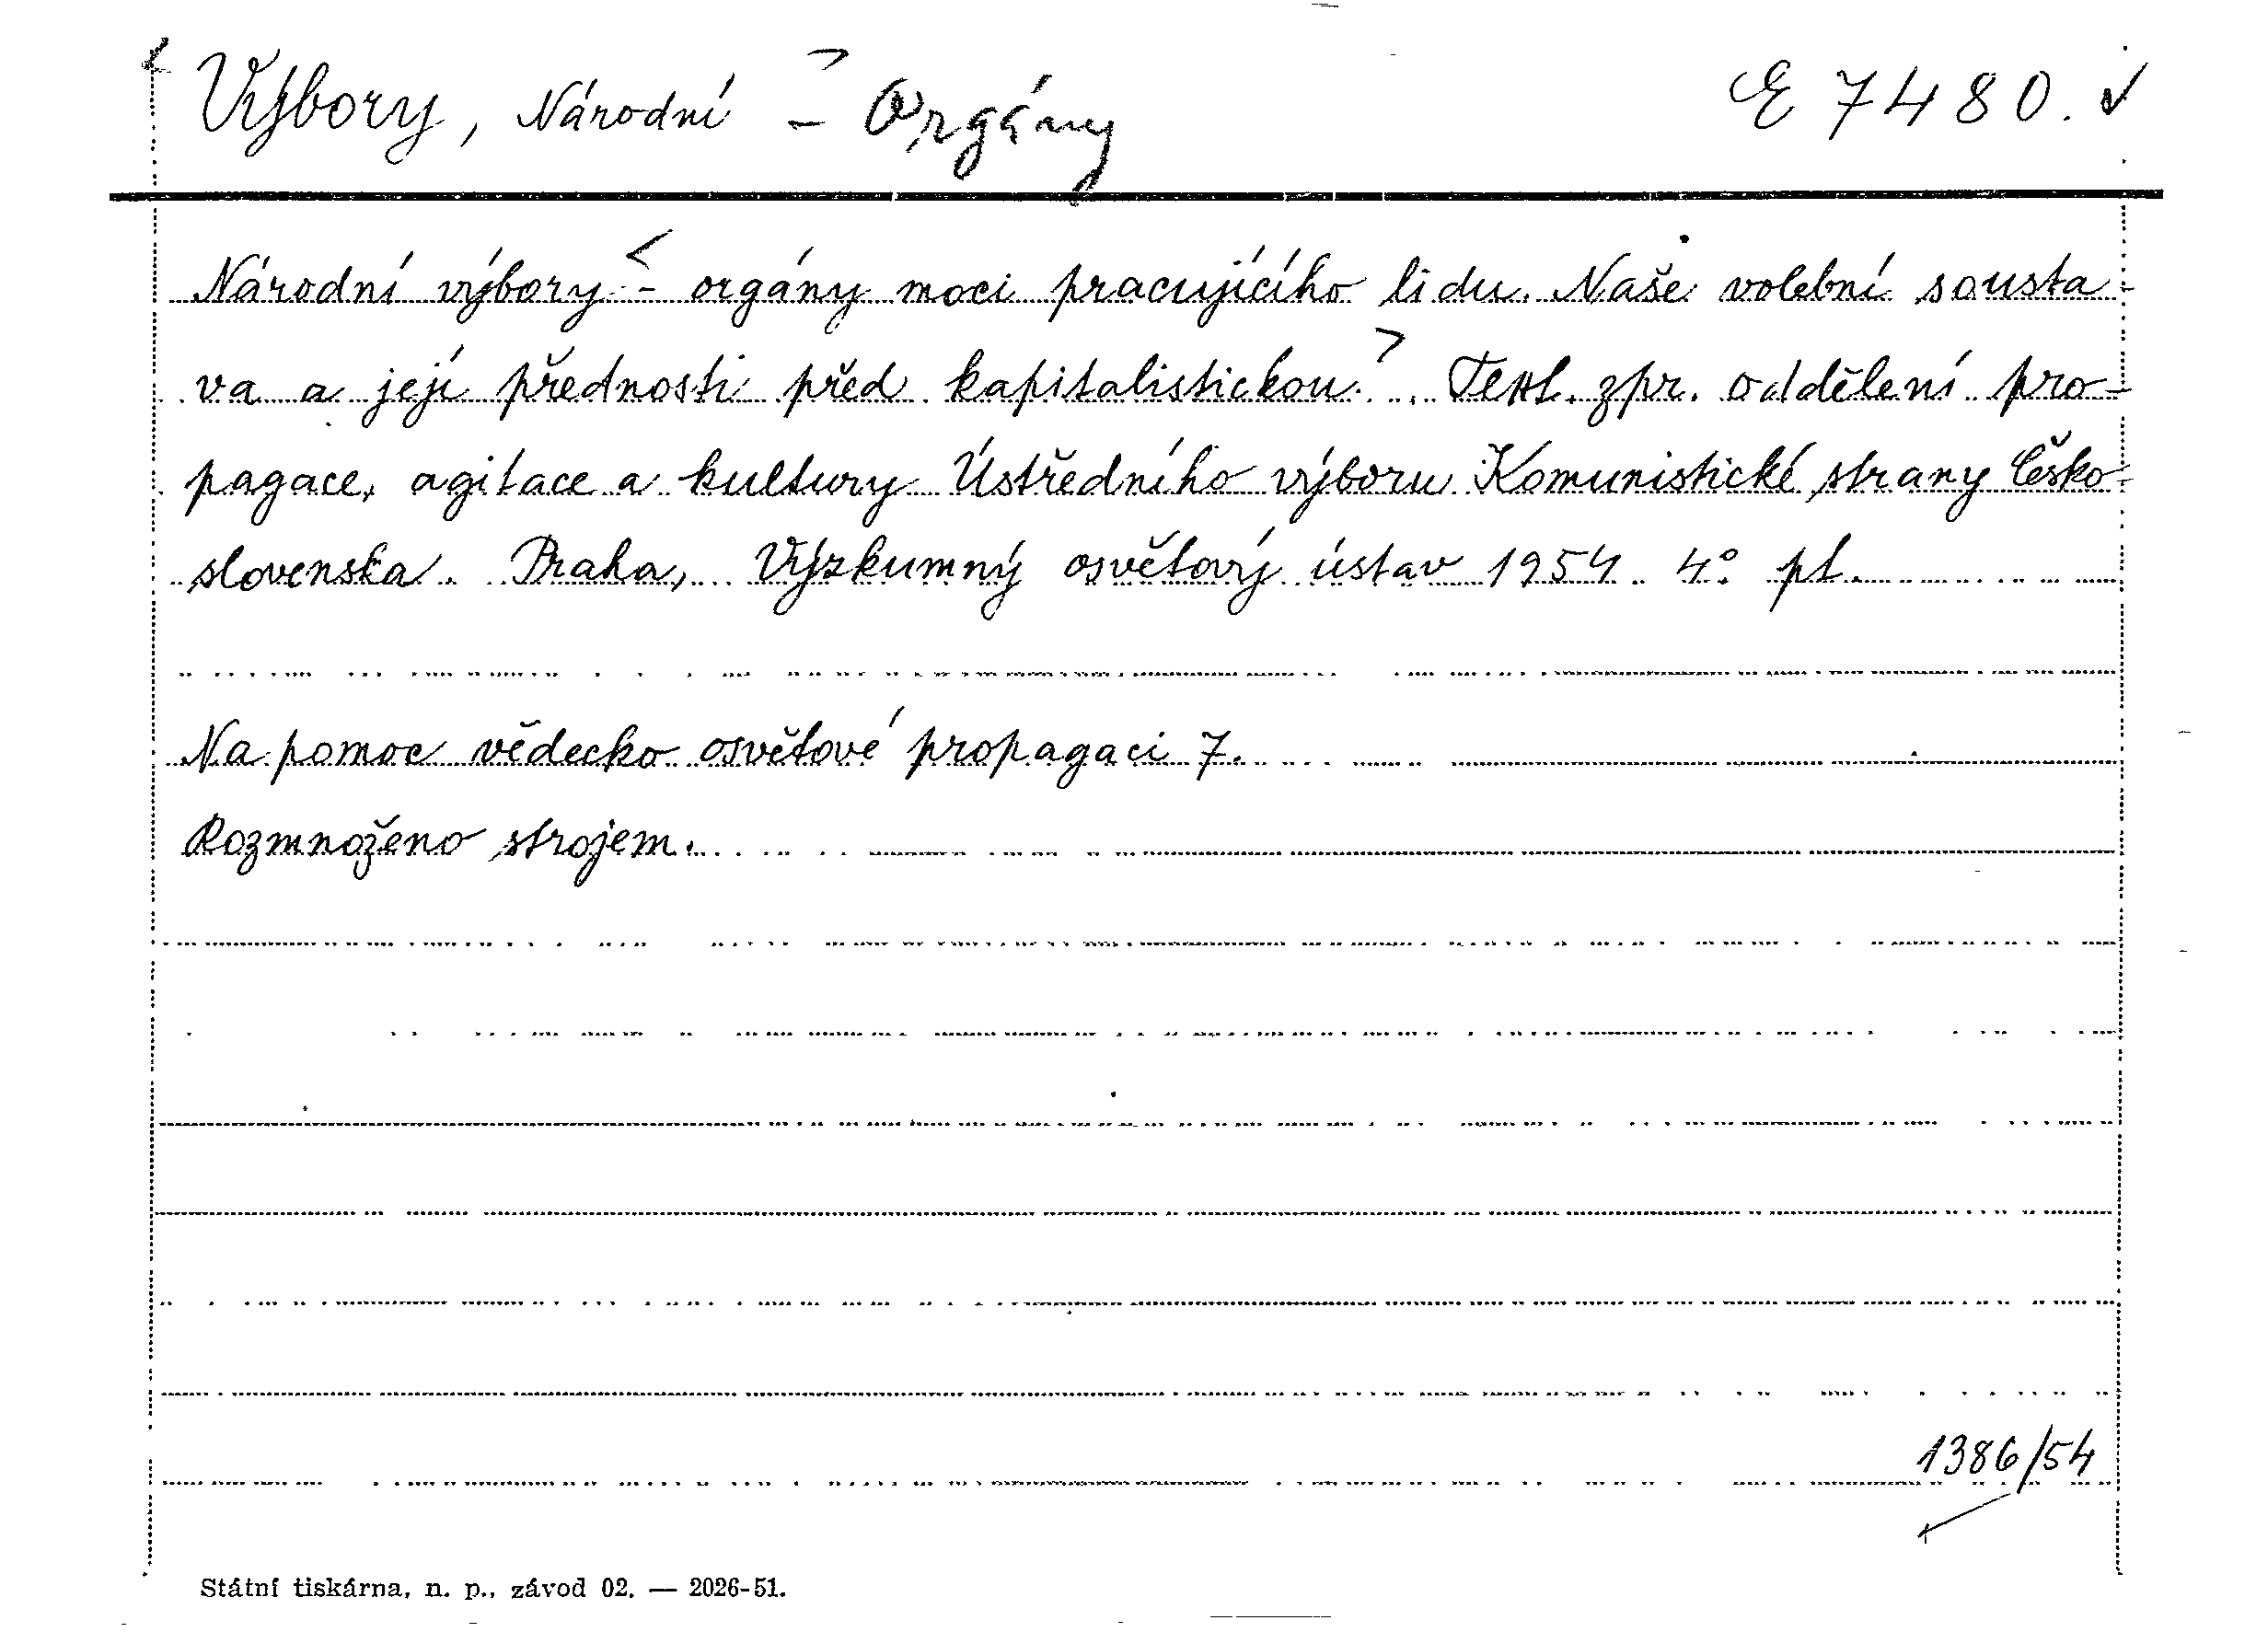 Výbory, Národní - Orgány E 7480.
Národní výbory - orgány moci pracujícího lidu. Naše volební sousta-
va a její přednosti před kapitalistickou. Text. zpr. oddělení pro-
pagace, agitace a kultury Ústředního výboru Komunistické strany Česko-
slovenska. Praha, Výzkumný osvětový ústav 1954. 4° pt.
Na pomoc vědecko osvětové propagaci 7.
Rozmnoženo strojem.
1386/54
Státní tiskárna, n. p., závod 02. — 2026-51.